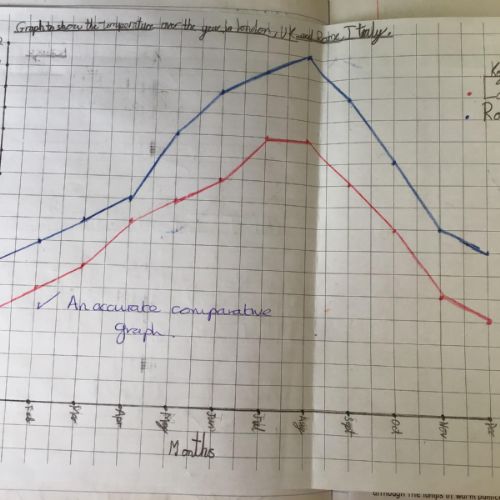 Graph to show the temperature over the year in London, UK and Rome, Italy.
Ro
✓ An accurate comparative
graph.
Feb Mar Apr May Jun Jul Aug Sept Oct Nov
Months